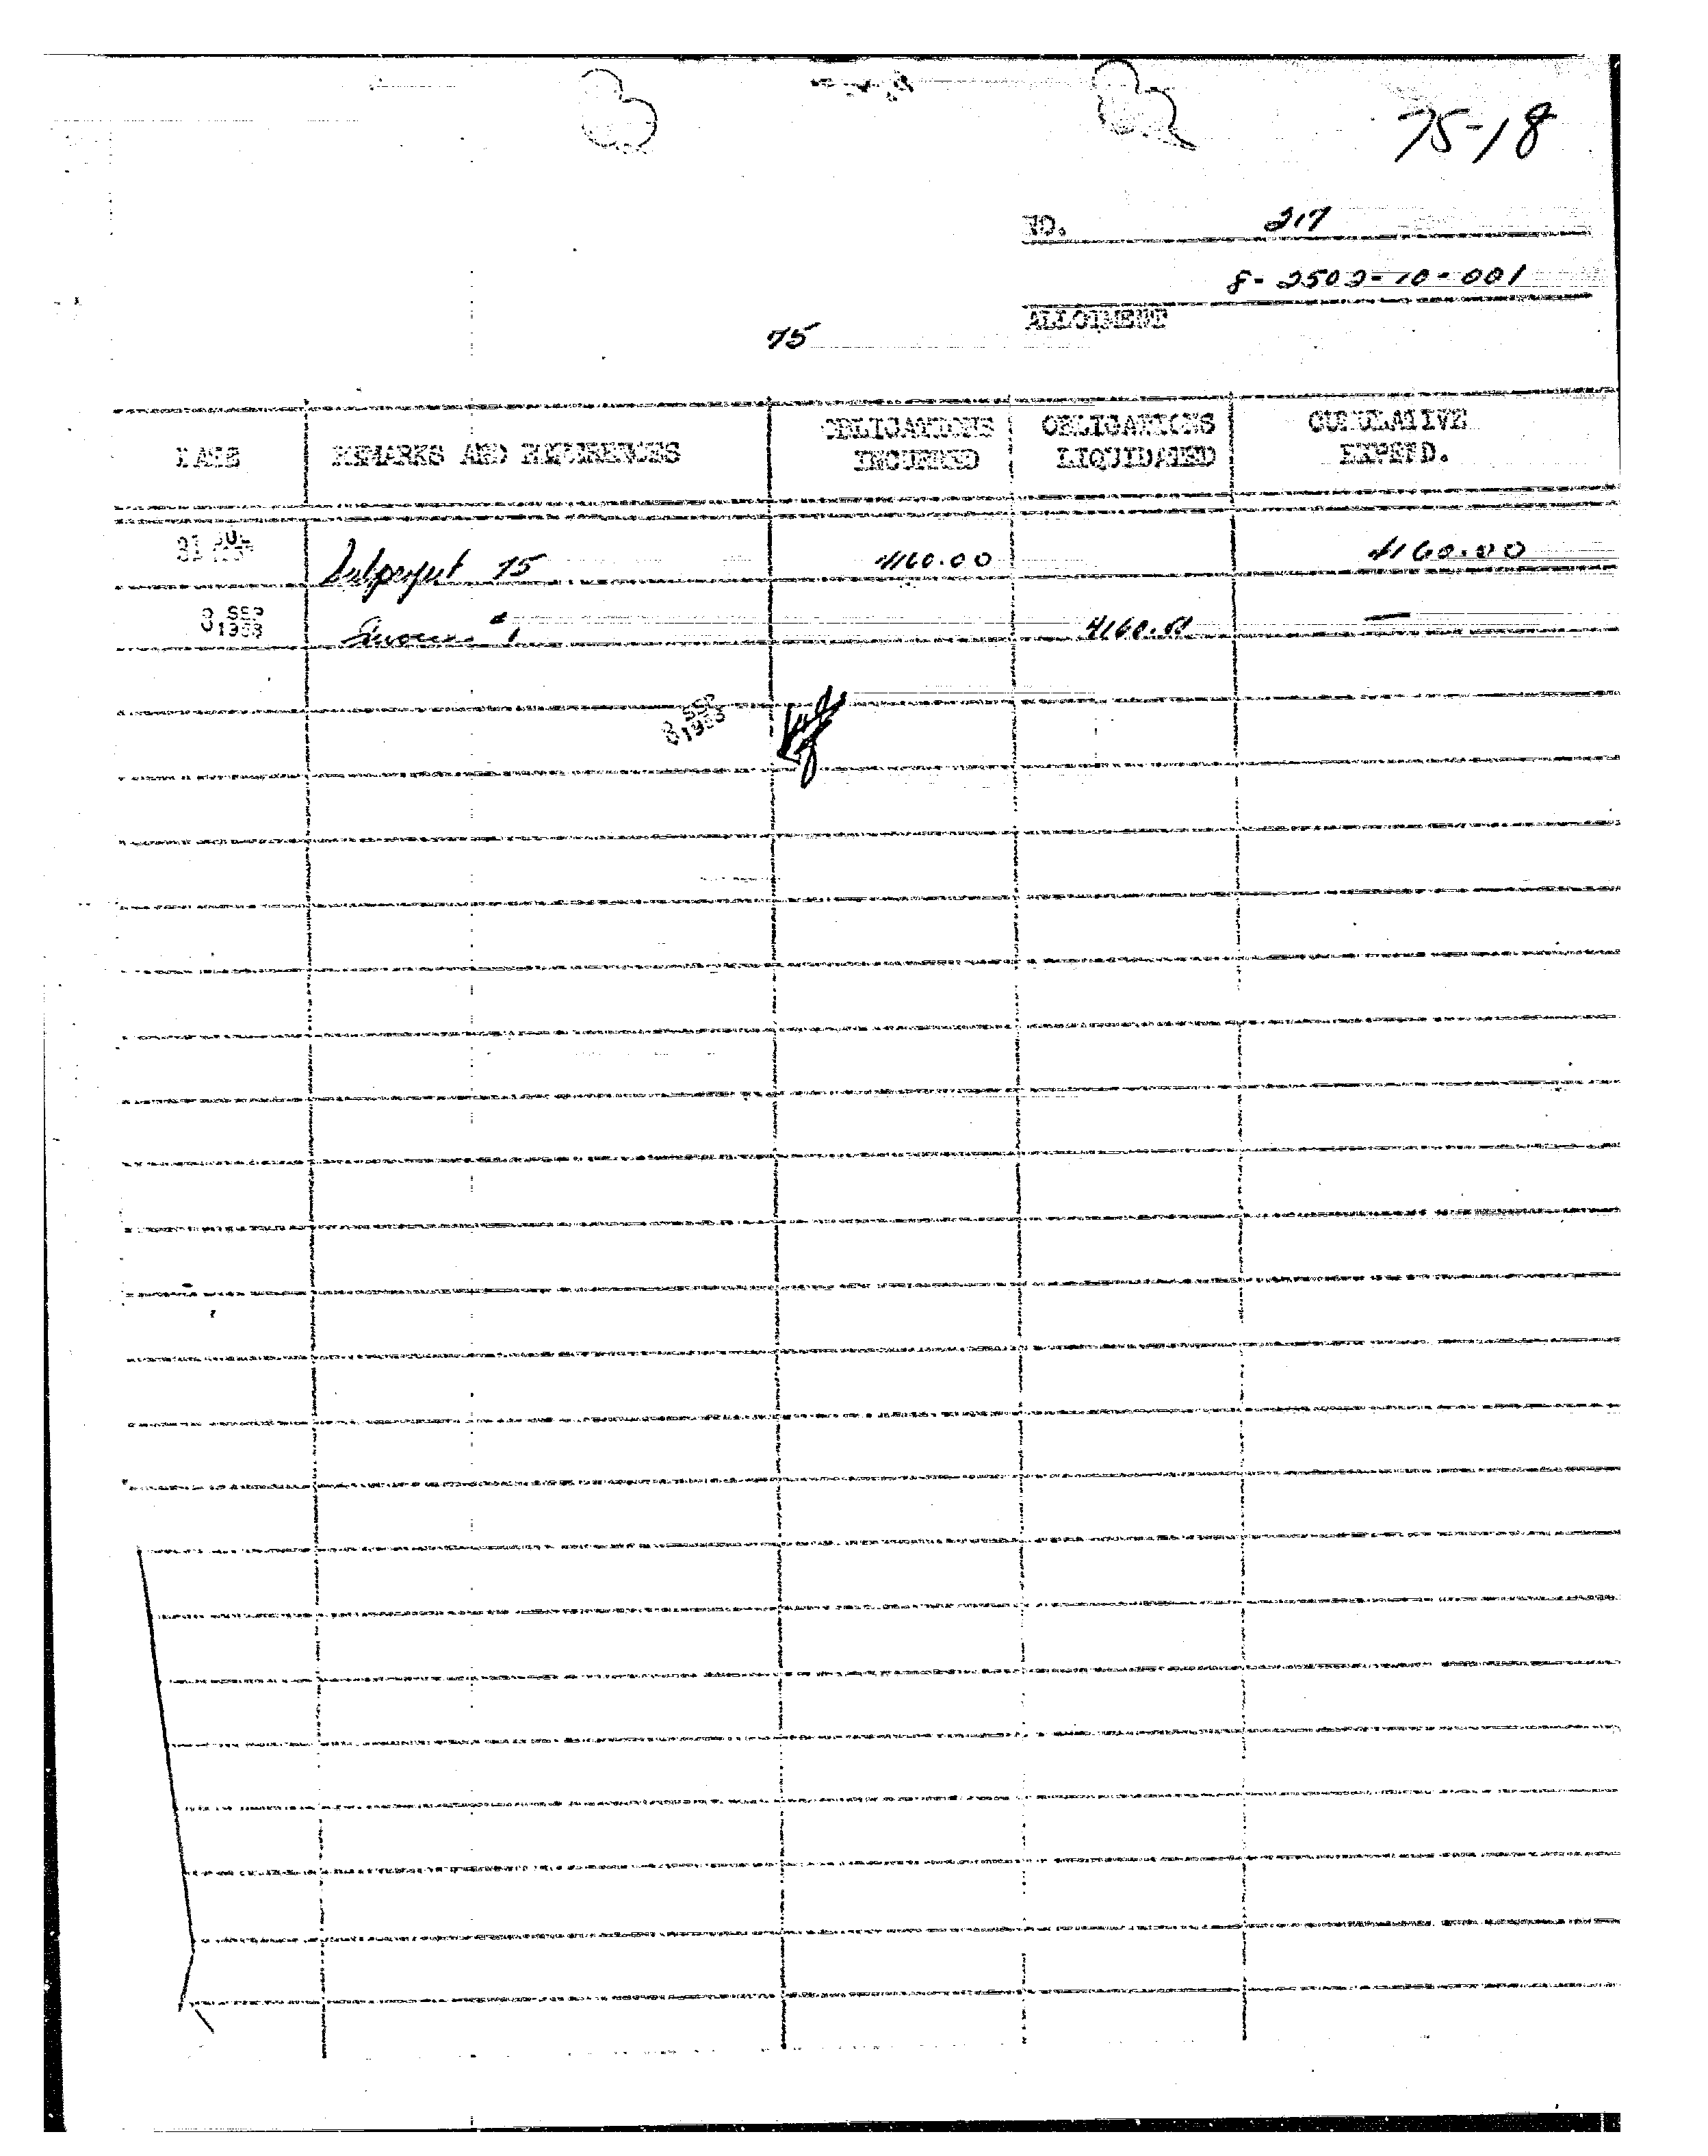 75-18
NO. 217
8-2502-10-001
ALLOTMENT
75
DATE REMARKS AND REFERENCES OBLIGATIONS INCURRED OBLIGATIONS LIQUIDATED CUMULATIVE EXPEND.
31 JUL Subproject 75 4160.00 4160.00
3 SEP 1953 Invoice #1 4160.00 —
3 SEP 1953